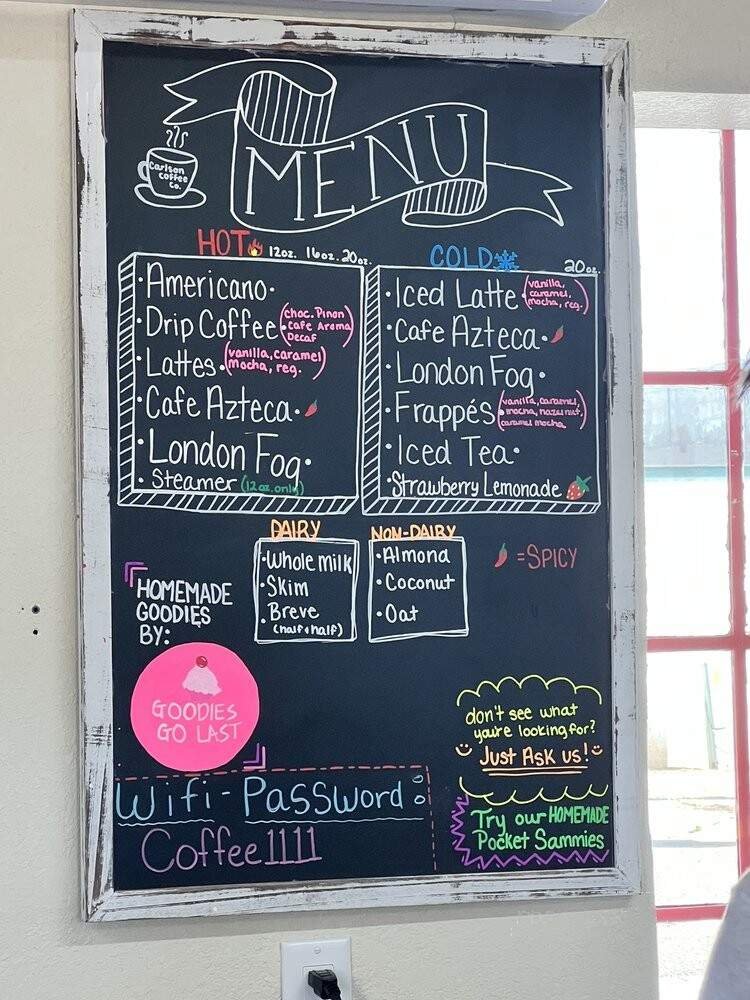 MENU
Carlson
Coffee
Co.
HOT 12oz. 16oz. 20oz.
• Americano •
• Drip Coffee • (choc. Pinon
Cafe Aroma
Decaf)
• Lattes • (vanilla, caramel
mocha, reg.)
• Cafe Azteca •
• London Fog •
• Steamer (12 oz. only)
COLD 20oz.
• Iced Latte • (vanilla,
caramel,
mocha, reg.)
• Cafe Azteca •
• London Fog •
• Frappés • (vanilla, caramel,
mocha, hazelnut,
caramel mocha)
• Iced Tea •
• Strawberry Lemonade
DAIRY
• Whole milk
• Skim
• Breve
(half & half)
NON-DAIRY
• Almond
• Coconut
• Oat
= SPICY
HOMEMADE
GOODIES
BY:
GOODIES
GO LAST
don't see what
you're looking for?
Just Ask us!
Try our HOMEMADE
Pocket Sammies
Wifi - Password:
Coffee1111